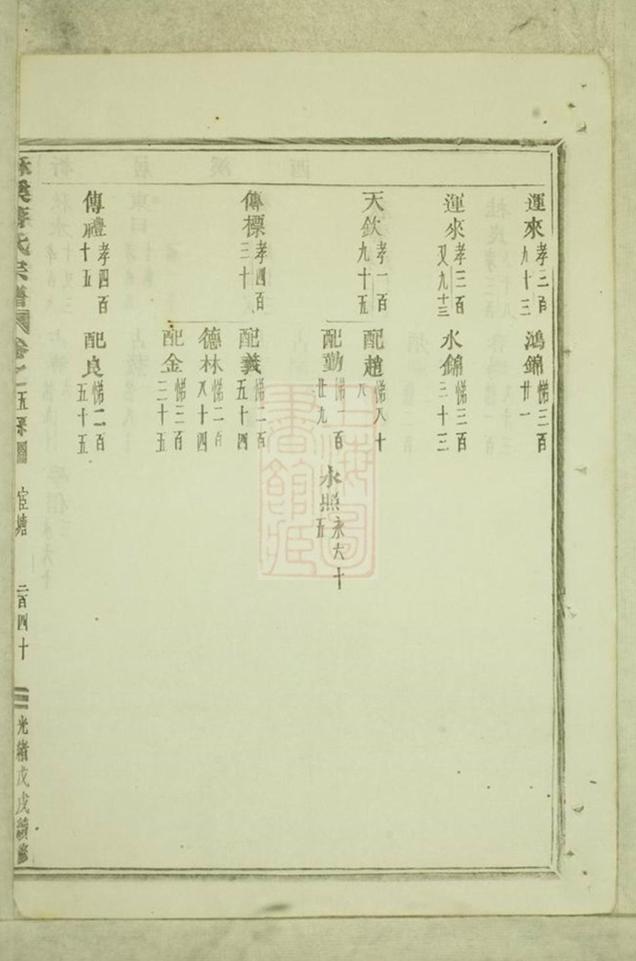 運來 孝三百九十三
鴻錦 悌三百廿一
運來 孝三百又九十三
水錦 悌三百三十三
天欽 孝一百九十五
配趙 悌八十八
配勤 悌一百廿九
永照 永六十五
傳標 孝四百三十
配義 悌二百五十四
德林 悌二百八十四
配金 悌三百三十五
傳禮 孝四百十五
配良 悌二百五十五
氏宗譜 卷之五
宦塘
二百四十
光緒戊戌續修
上海圖書館藏